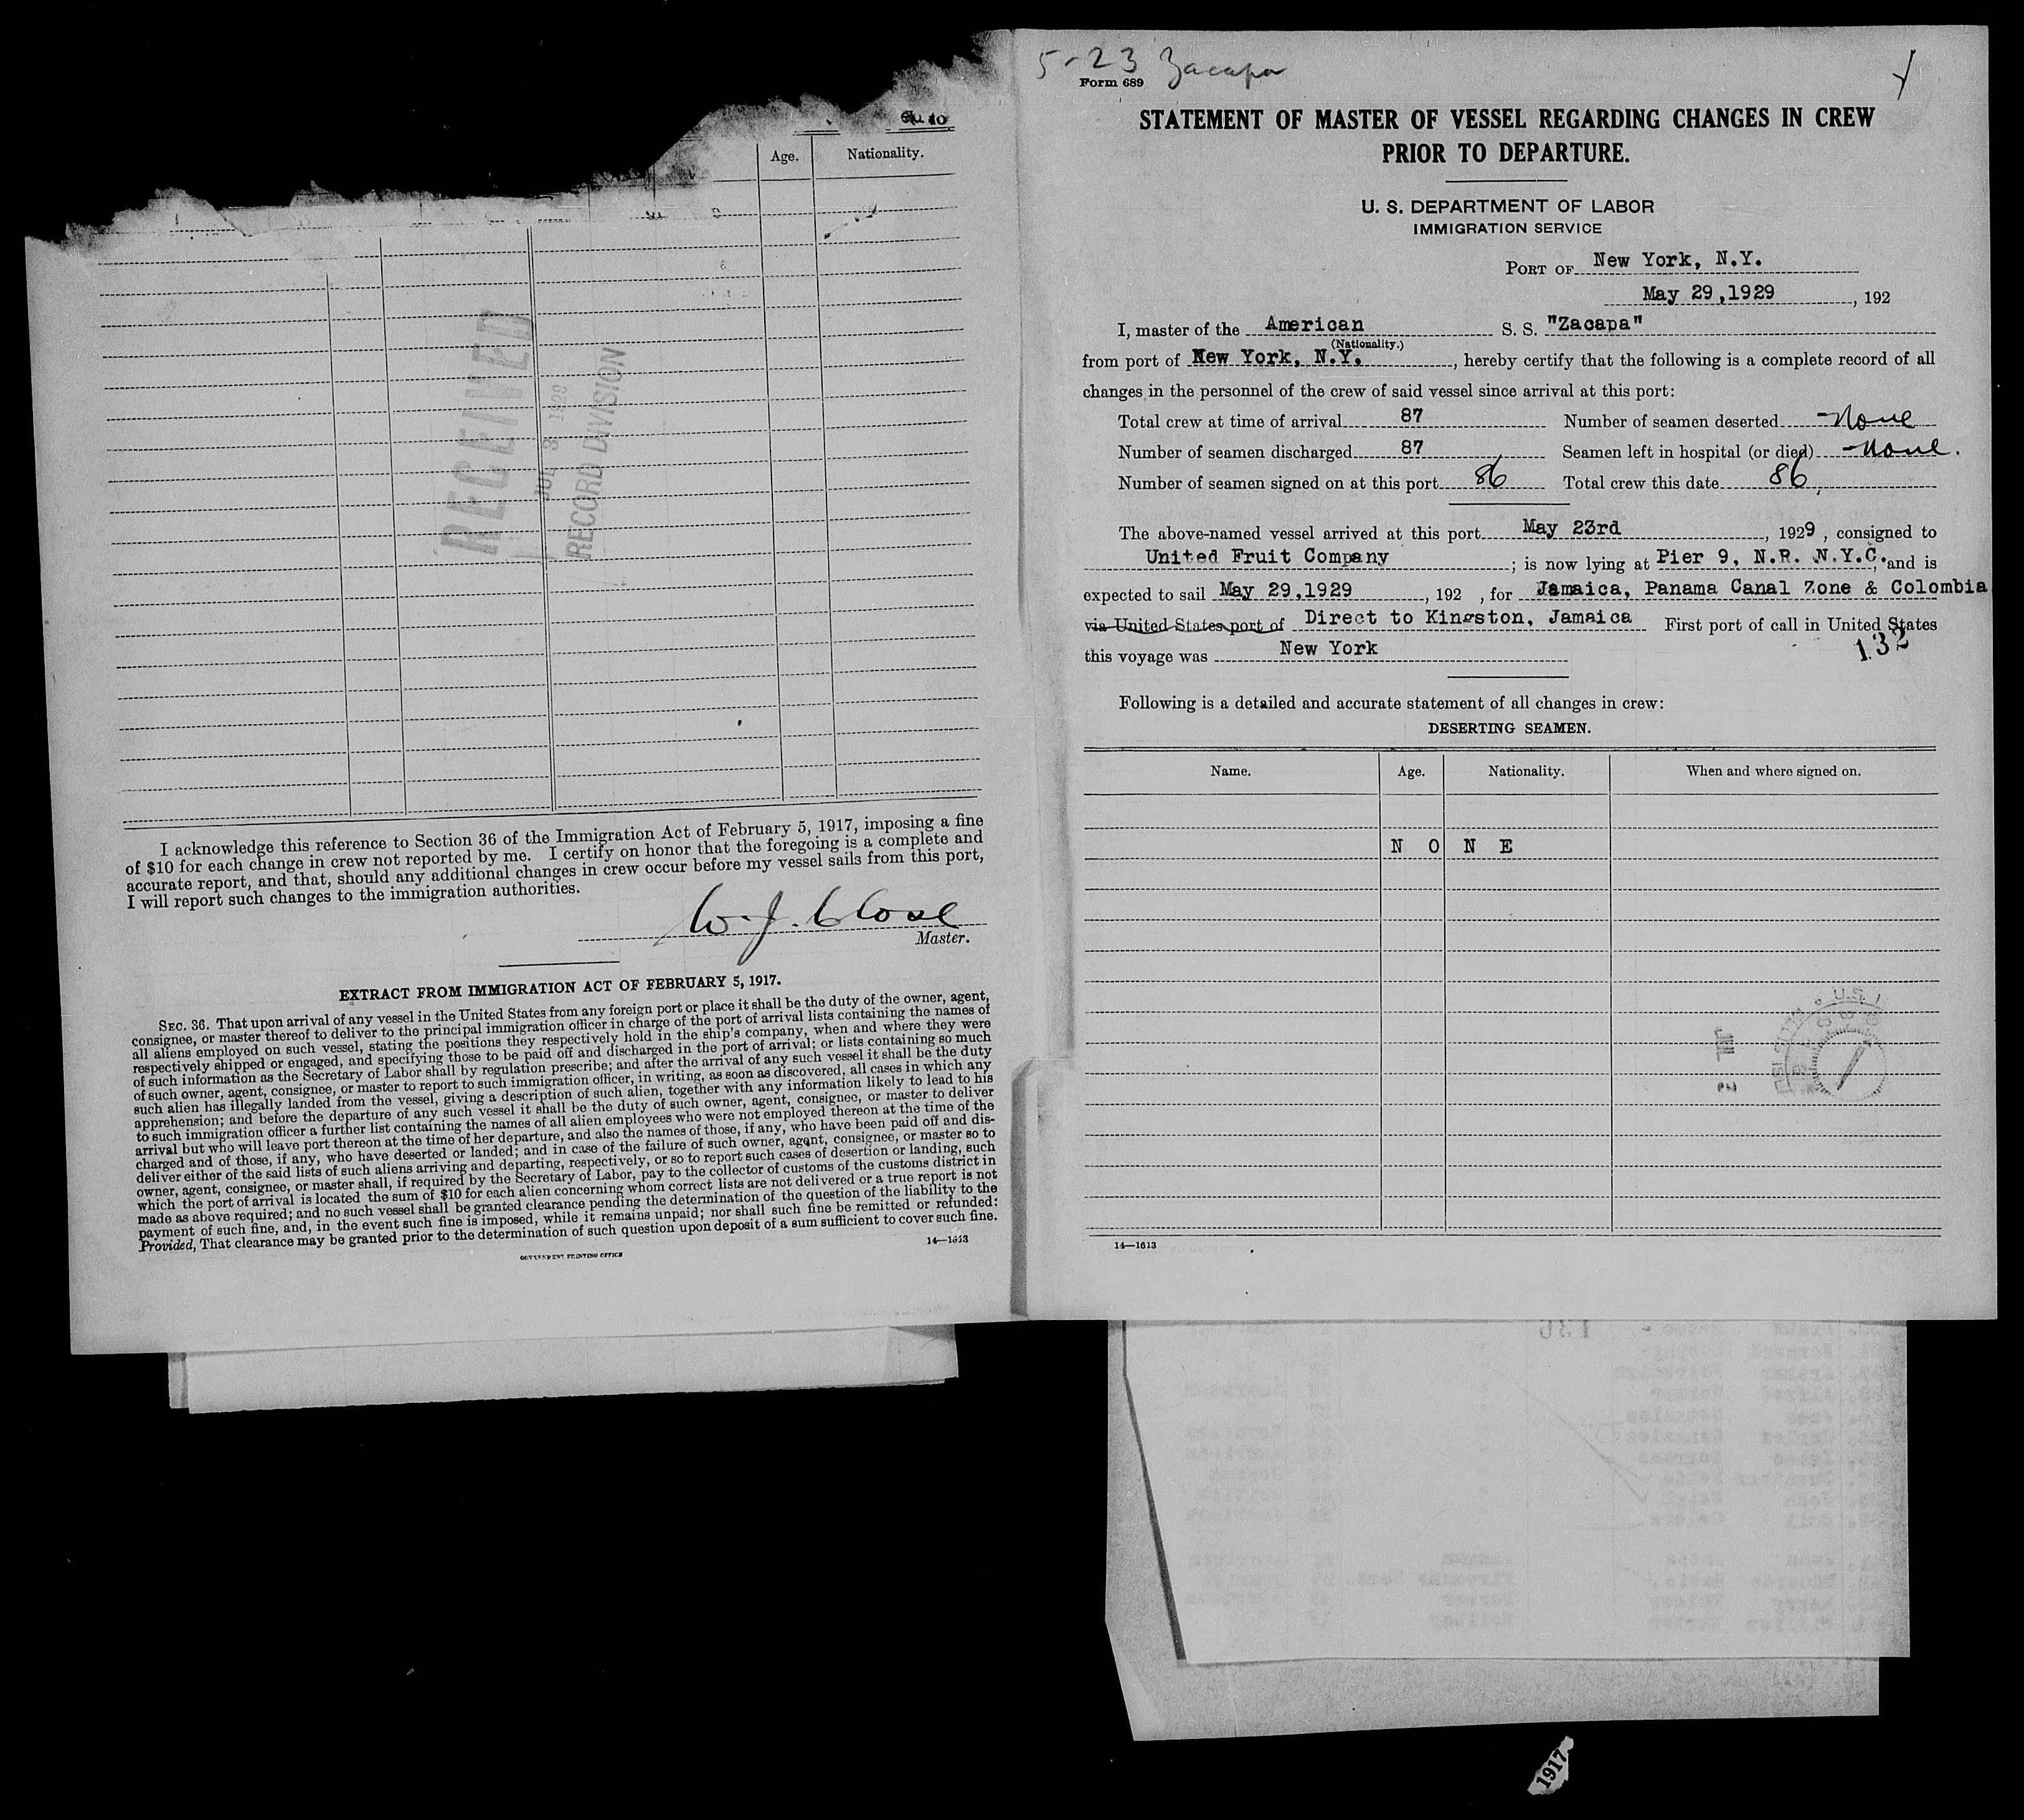 Age. Nationality.
RECEIVED
JUL 3 1929
RECORD DIVISION
I acknowledge this reference to Section 36 of the Immigration Act of February 5, 1917, imposing a fine
of $10 for each change in crew not reported by me. I certify on honor that the foregoing is a complete and
accurate report, and that, should any additional changes in crew occur before my vessel sails from this port,
I will report such changes to the immigration authorities.
W. J. Close
Master.
EXTRACT FROM IMMIGRATION ACT OF FEBRUARY 5, 1917.
SEC. 36. That upon arrival of any vessel in the United States from any foreign port or place it shall be the duty of the owner, agent,
consignee, or master thereof to deliver to the principal immigration officer in charge of the port of arrival lists containing the names of
all aliens employed on such vessel, stating the positions they respectively hold in the ship's company, when and where they were
respectively shipped or engaged, and specifying those to be paid off and discharged in the port of arrival; or lists containing so much
of such information as the Secretary of Labor shall by regulation prescribe; and after the arrival of any such vessel it shall be the duty
of such owner, agent, consignee, or master to report to such immigration officer, in writing, as soon as discovered, all cases in which any
such alien has illegally landed from the vessel, giving a description of such alien, together with any information likely to lead to his
apprehension; and before the departure of any such vessel it shall be the duty of such owner, agent, consignee, or master to deliver
to such immigration officer a further list containing the names of all alien employees who were not employed thereon at the time of the
arrival but who will leave port thereon at the time of her departure, and also the names of those, if any, who have been paid off and dis-
charged and of those, if any, who have deserted or landed; and in case of the failure of such owner, agent, consignee, or master so to
deliver either of the said lists of such aliens arriving and departing, respectively, or so to report such cases of desertion or landing, such
owner, agent, consignee, or master shall, if required by the Secretary of Labor, pay to the collector of customs of the customs district in
which the port of arrival is located the sum of $10 for each alien concerning whom correct lists are not delivered or a true report is not
made as above required; and no such vessel shall be granted clearance pending the determination of the question of the liability to the
payment of such fine, and, in the event such fine is imposed, while it remains unpaid; nor shall such fine be remitted or refunded:
Provided, That clearance may be granted prior to the determination of such question upon deposit of a sum sufficient to cover such fine.
GOVERNMENT PRINTING OFFICE 14—1613
5-23 Zacapa
Form 689
STATEMENT OF MASTER OF VESSEL REGARDING CHANGES IN CREW
PRIOR TO DEPARTURE.
U. S. DEPARTMENT OF LABOR
IMMIGRATION SERVICE
PORT OF New York, N.Y.
May 29,1929, 192
I, master of the American S. S. "Zacapa"
(Nationality.)
from port of New York, N.Y., hereby certify that the following is a complete record of all
changes in the personnel of the crew of said vessel since arrival at this port:
Total crew at time of arrival 87 Number of seamen deserted None
Number of seamen discharged 87 Seamen left in hospital (or died) None.
Number of seamen signed on at this port 86 Total crew this date 86
The above-named vessel arrived at this port May 23rd, 1929, consigned to
United Fruit Company; is now lying at Pier 9, N.R. N.Y.C., and is
expected to sail May 29,1929, 192 , for Jamaica, Panama Canal Zone & Colombia
via United States port of Direct to Kingston, Jamaica First port of call in United States
this voyage was New York 132
Following is a detailed and accurate statement of all changes in crew:
DESERTING SEAMEN.
Name. Age. Nationality. When and where signed on.
N O N E
14—1613
1917